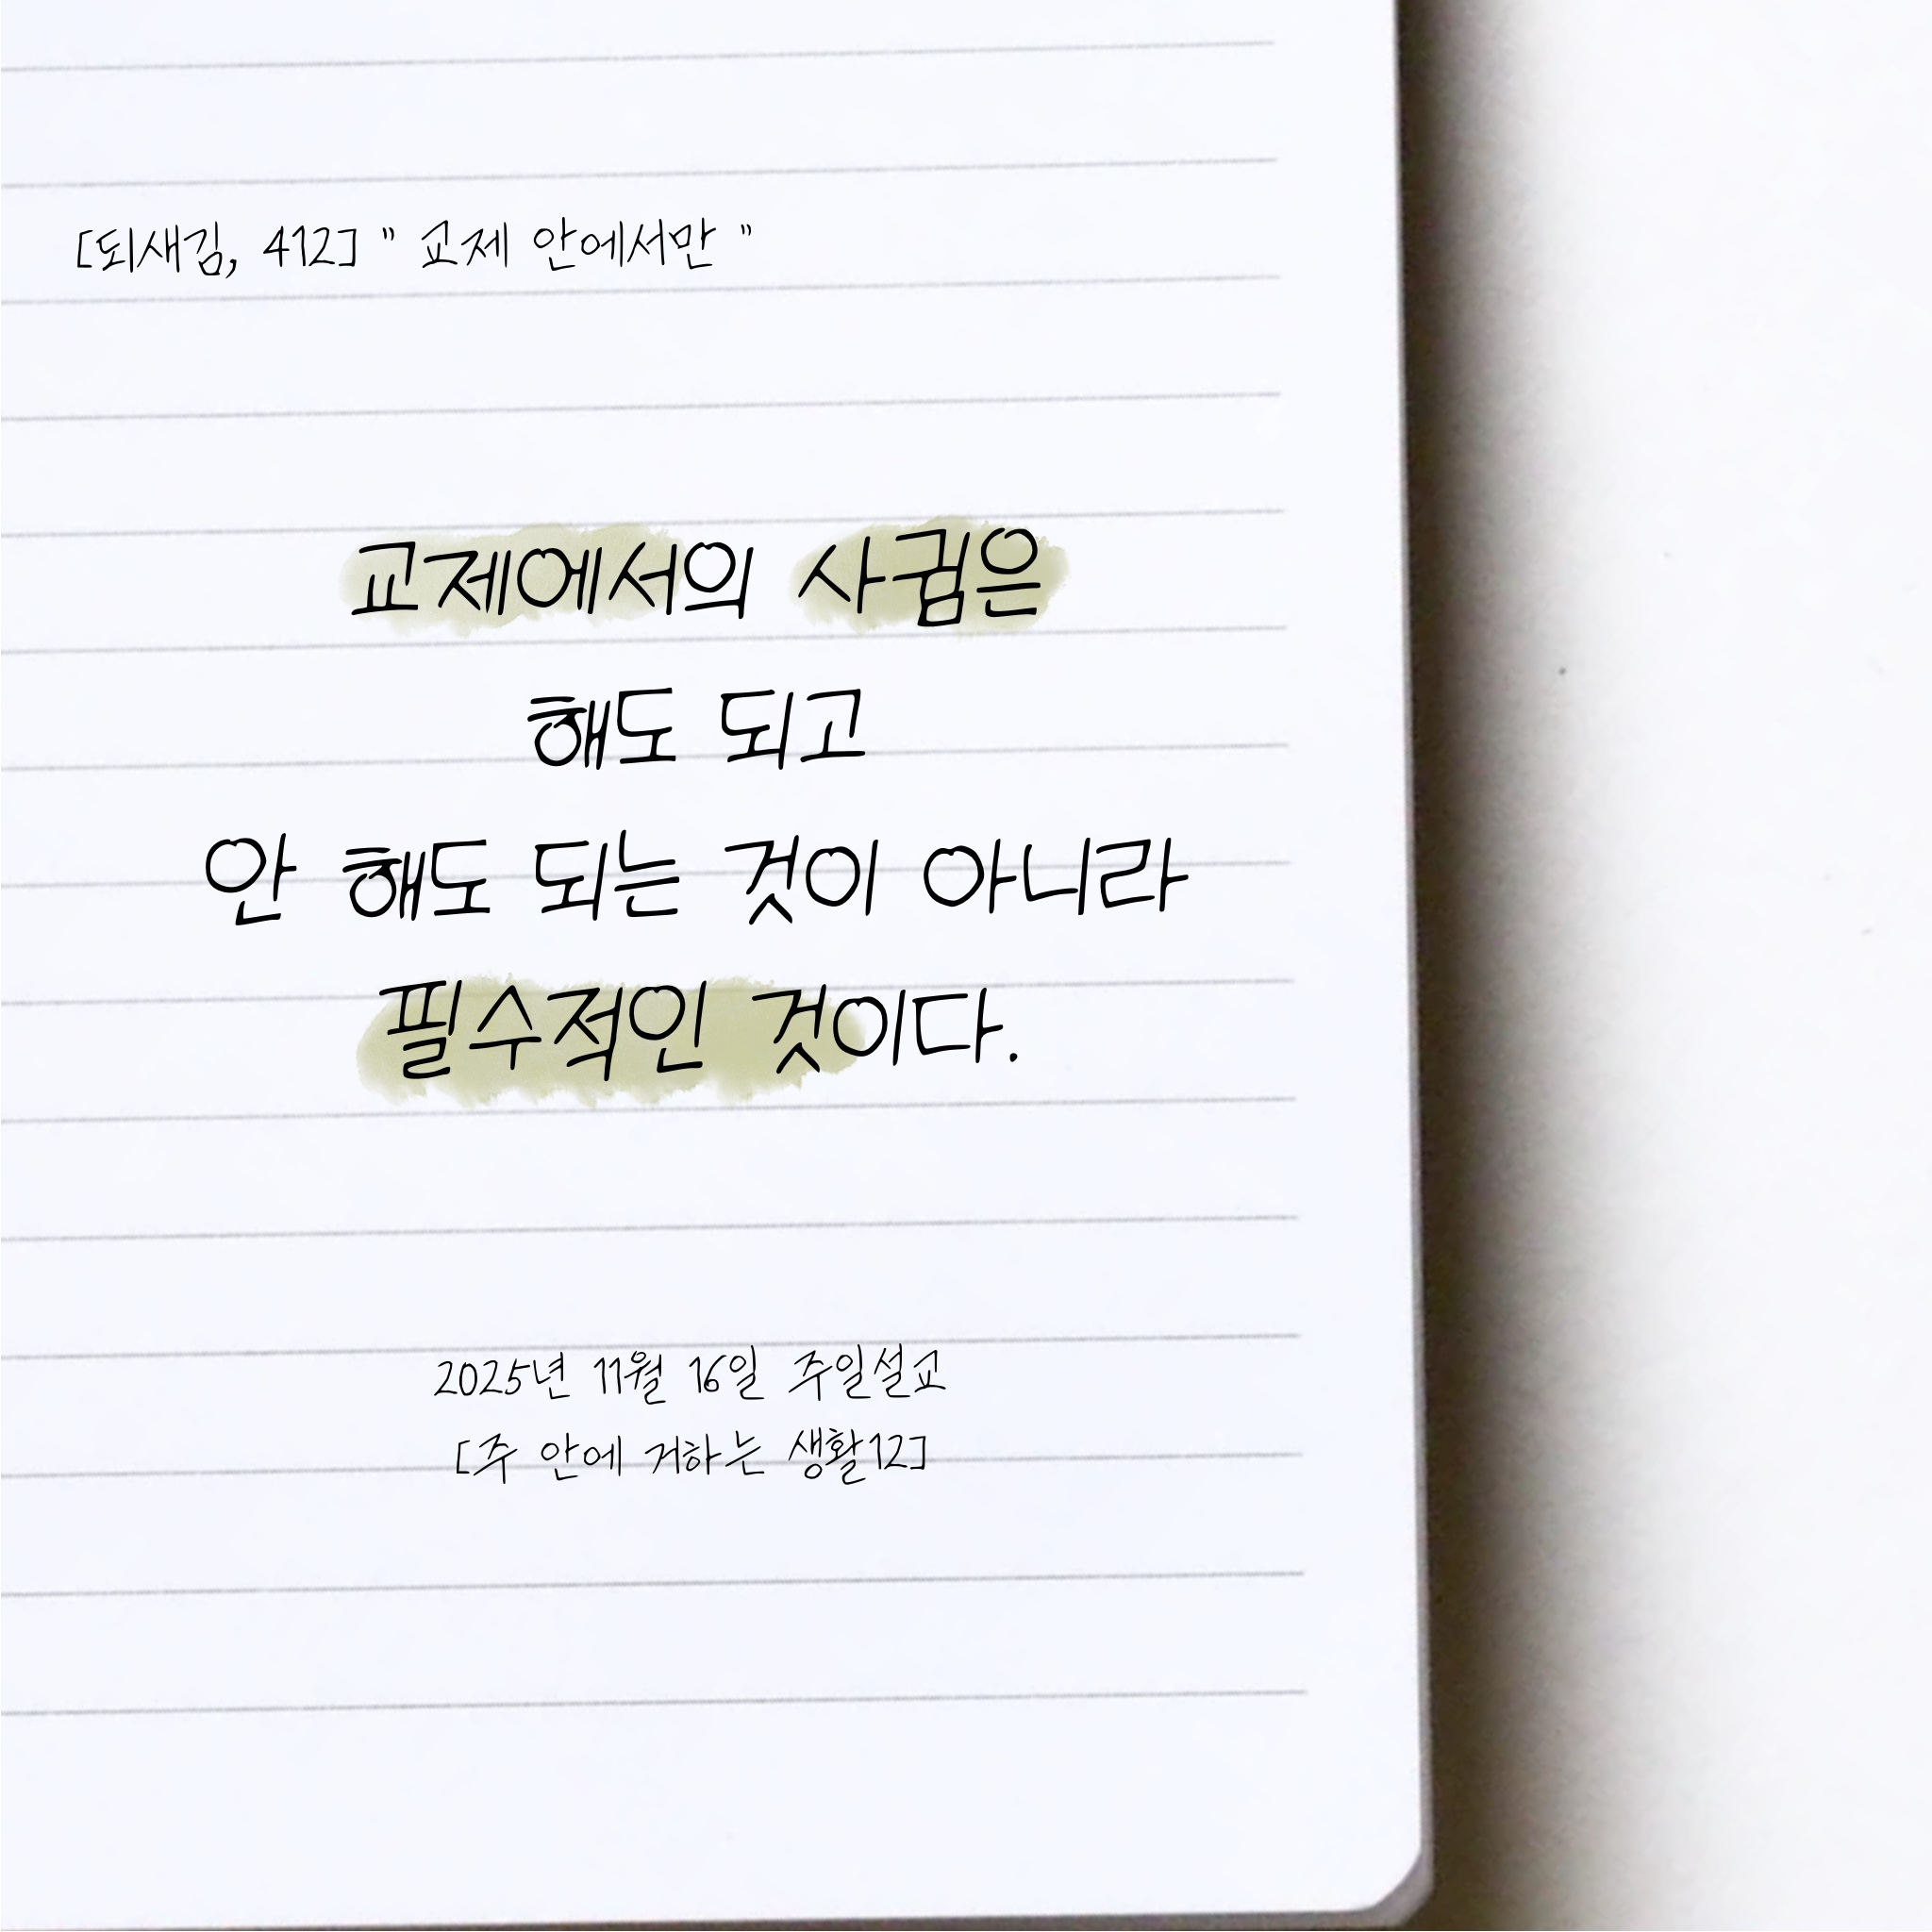 [되새김, 412] " 교제 안에서만 "
교제에서의 사귐은
해도 되고
안 해도 되는 것이 아니라
필수적인 것이다.
2025년 11월 16일 주일설교
[주 안에 거하는 생활12]